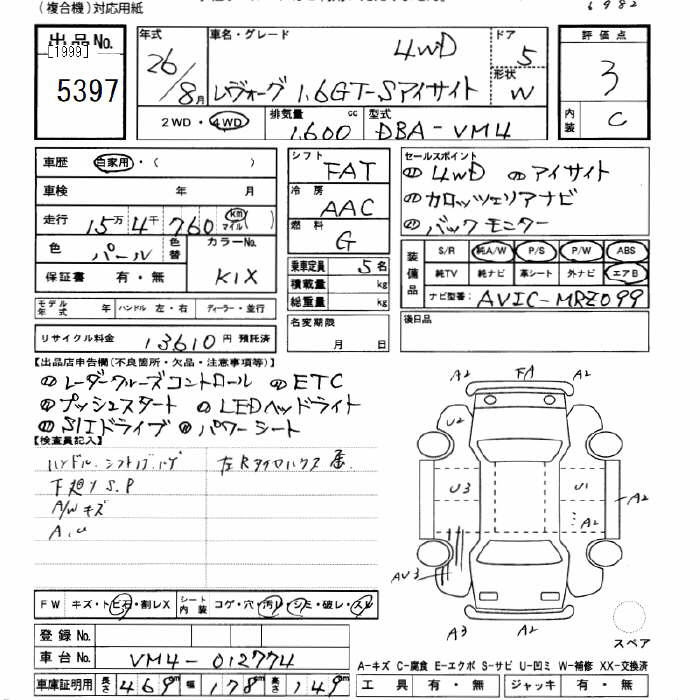 (複合機)対応用紙
6982
出品No.
[1999]
5397
年式
26/8月
車名・グレード
4WD
レヴォーグ 1.6GT-Sアイサイト
ドア
5
形状
W
2WD・4WD
排気量
1.600 cc
型式
DBA-VM4
評価点
3
内装
C
車歴 自家用・( )
車検 年 月
走行 15万4千760 km マイル
色 パール 色替
カラーNo.
KIX
保証書 有・無
モデル年式 年 ハンドル 左・右 ディーラー・並行
リサイクル料金 13610円 預託済
シフト
FAT
冷房
AAC
燃料
G
乗車定員 5名
積載量 kg
総重量 kg
名変期限
月 日
セールスポイント
4WD アイサイト
カロッツェリアナビ
バックモニター
装備品
S/R 純A/W P/S P/W ABS
純TV 純ナビ 革シート 外ナビ エアB
ナビ型番: AVIC-MRZ099
後日品
【出品店申告欄(不良箇所・欠品・注意事項等)】
レーダークルーズコントロール ETC
プッシュスタート LEDヘッドライト
SIドライブ パワーシート
【検査員記入】
ハンドル.シフトノブ
下廻り S.P
A/W キズ
A.U
A2 FA A2
U2
U3 U1
A2 A2
AV3
A3 A2
スペア
FW キズ・トビ石・割レX シート内装 コゲ・穴・汚レ・シミ・破レ・スレ
登録No.
車台No. VM4-012774
車庫証明用 長さ 469cm 幅 178cm 高さ 149cm
A-キズ C-腐食 E-エクボ S-サビ U-凹ミ W-補修 XX-交換済
工具 有・無 ジャッキ 有・無